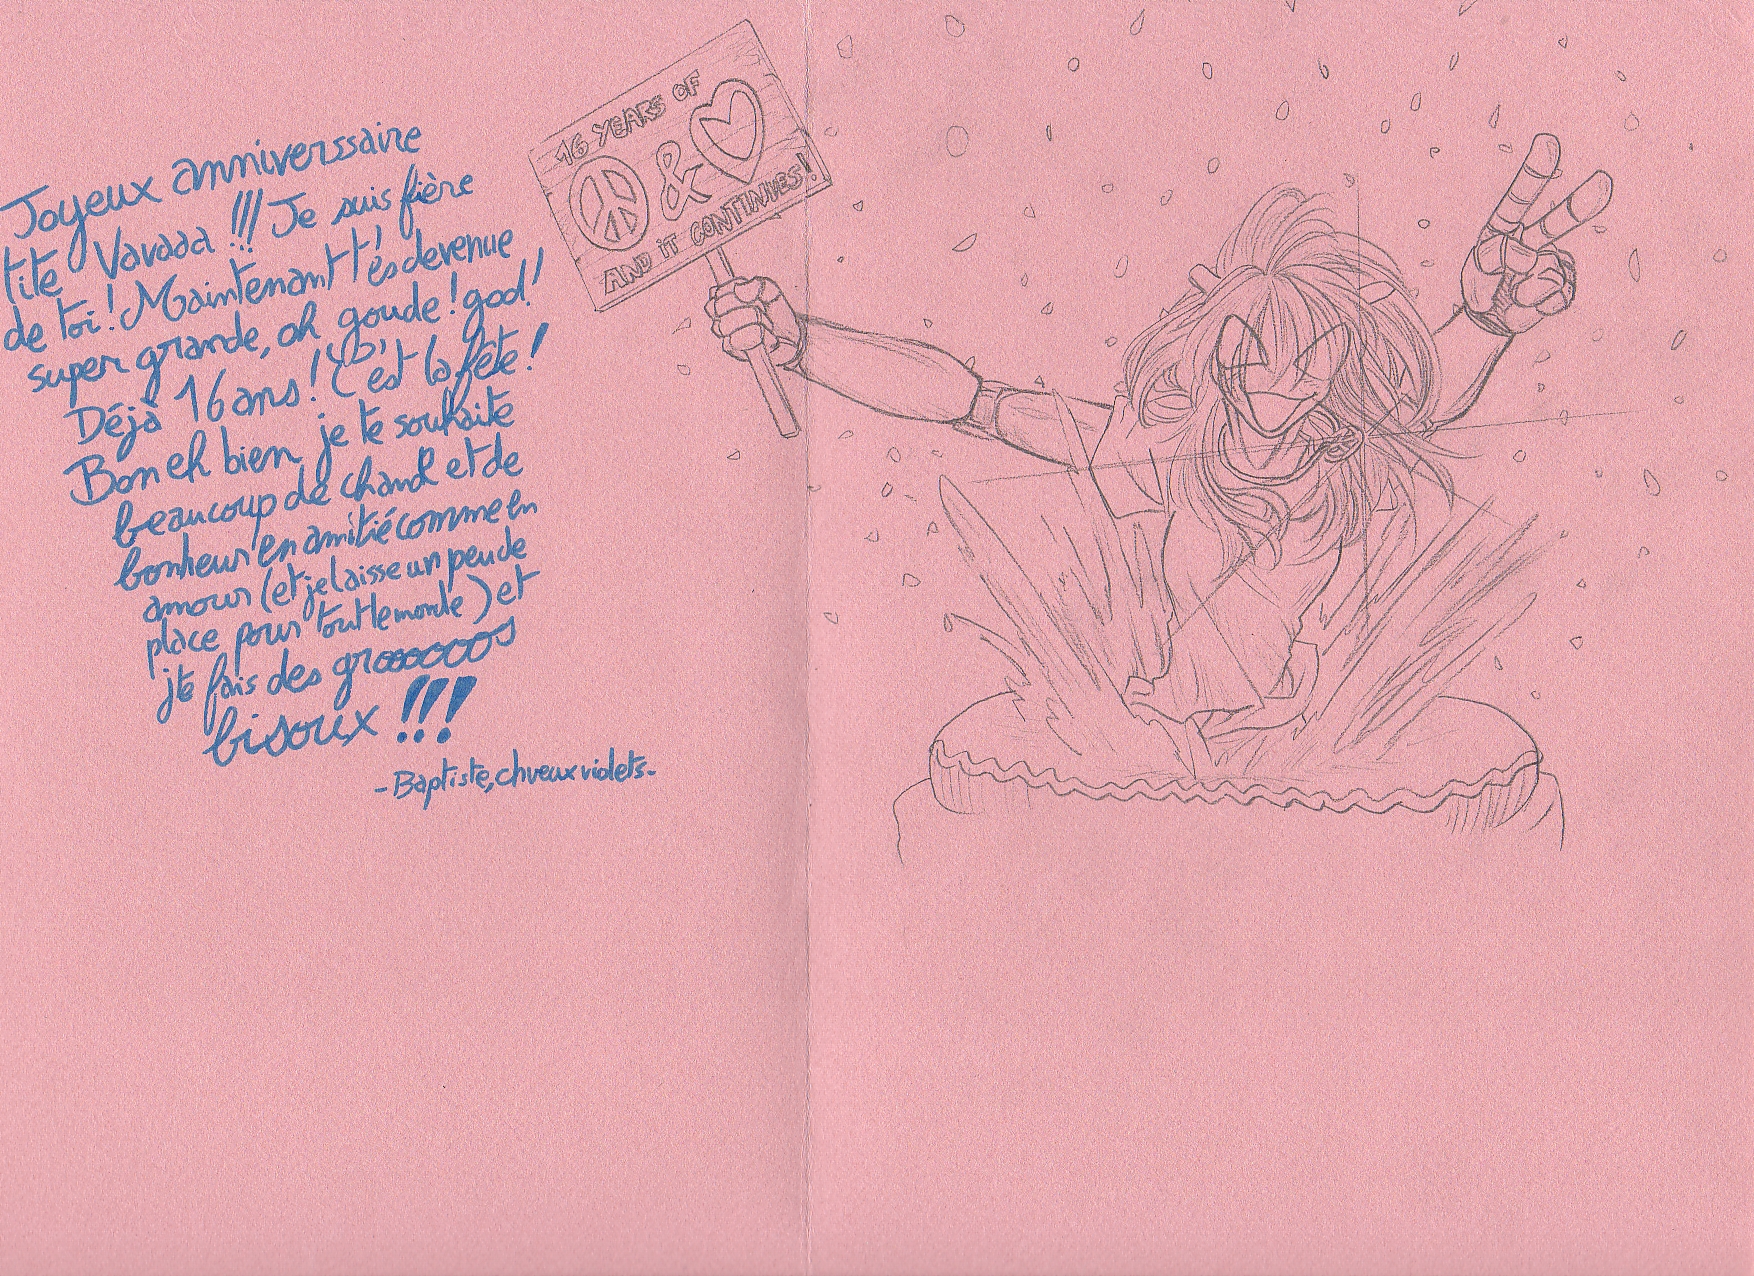 Joyeux anniverssaire
tite Vavaaa !!! Je suis fière
de toi! Maintenant t'es devenue
super grande, oh goude! god!
Déjà 16 ans! C'est la fête!
Bon eh bien je te souhaite
beaucoup de chand et de
bonheur en amitié comme en
amour (et je laisse un peu de
place pour tout le monde) et
j'te fais des groooooos
bisoux !!!
-Baptiste, chveux violets-
16 YEARS OF
&
AND IT CONTINUES!